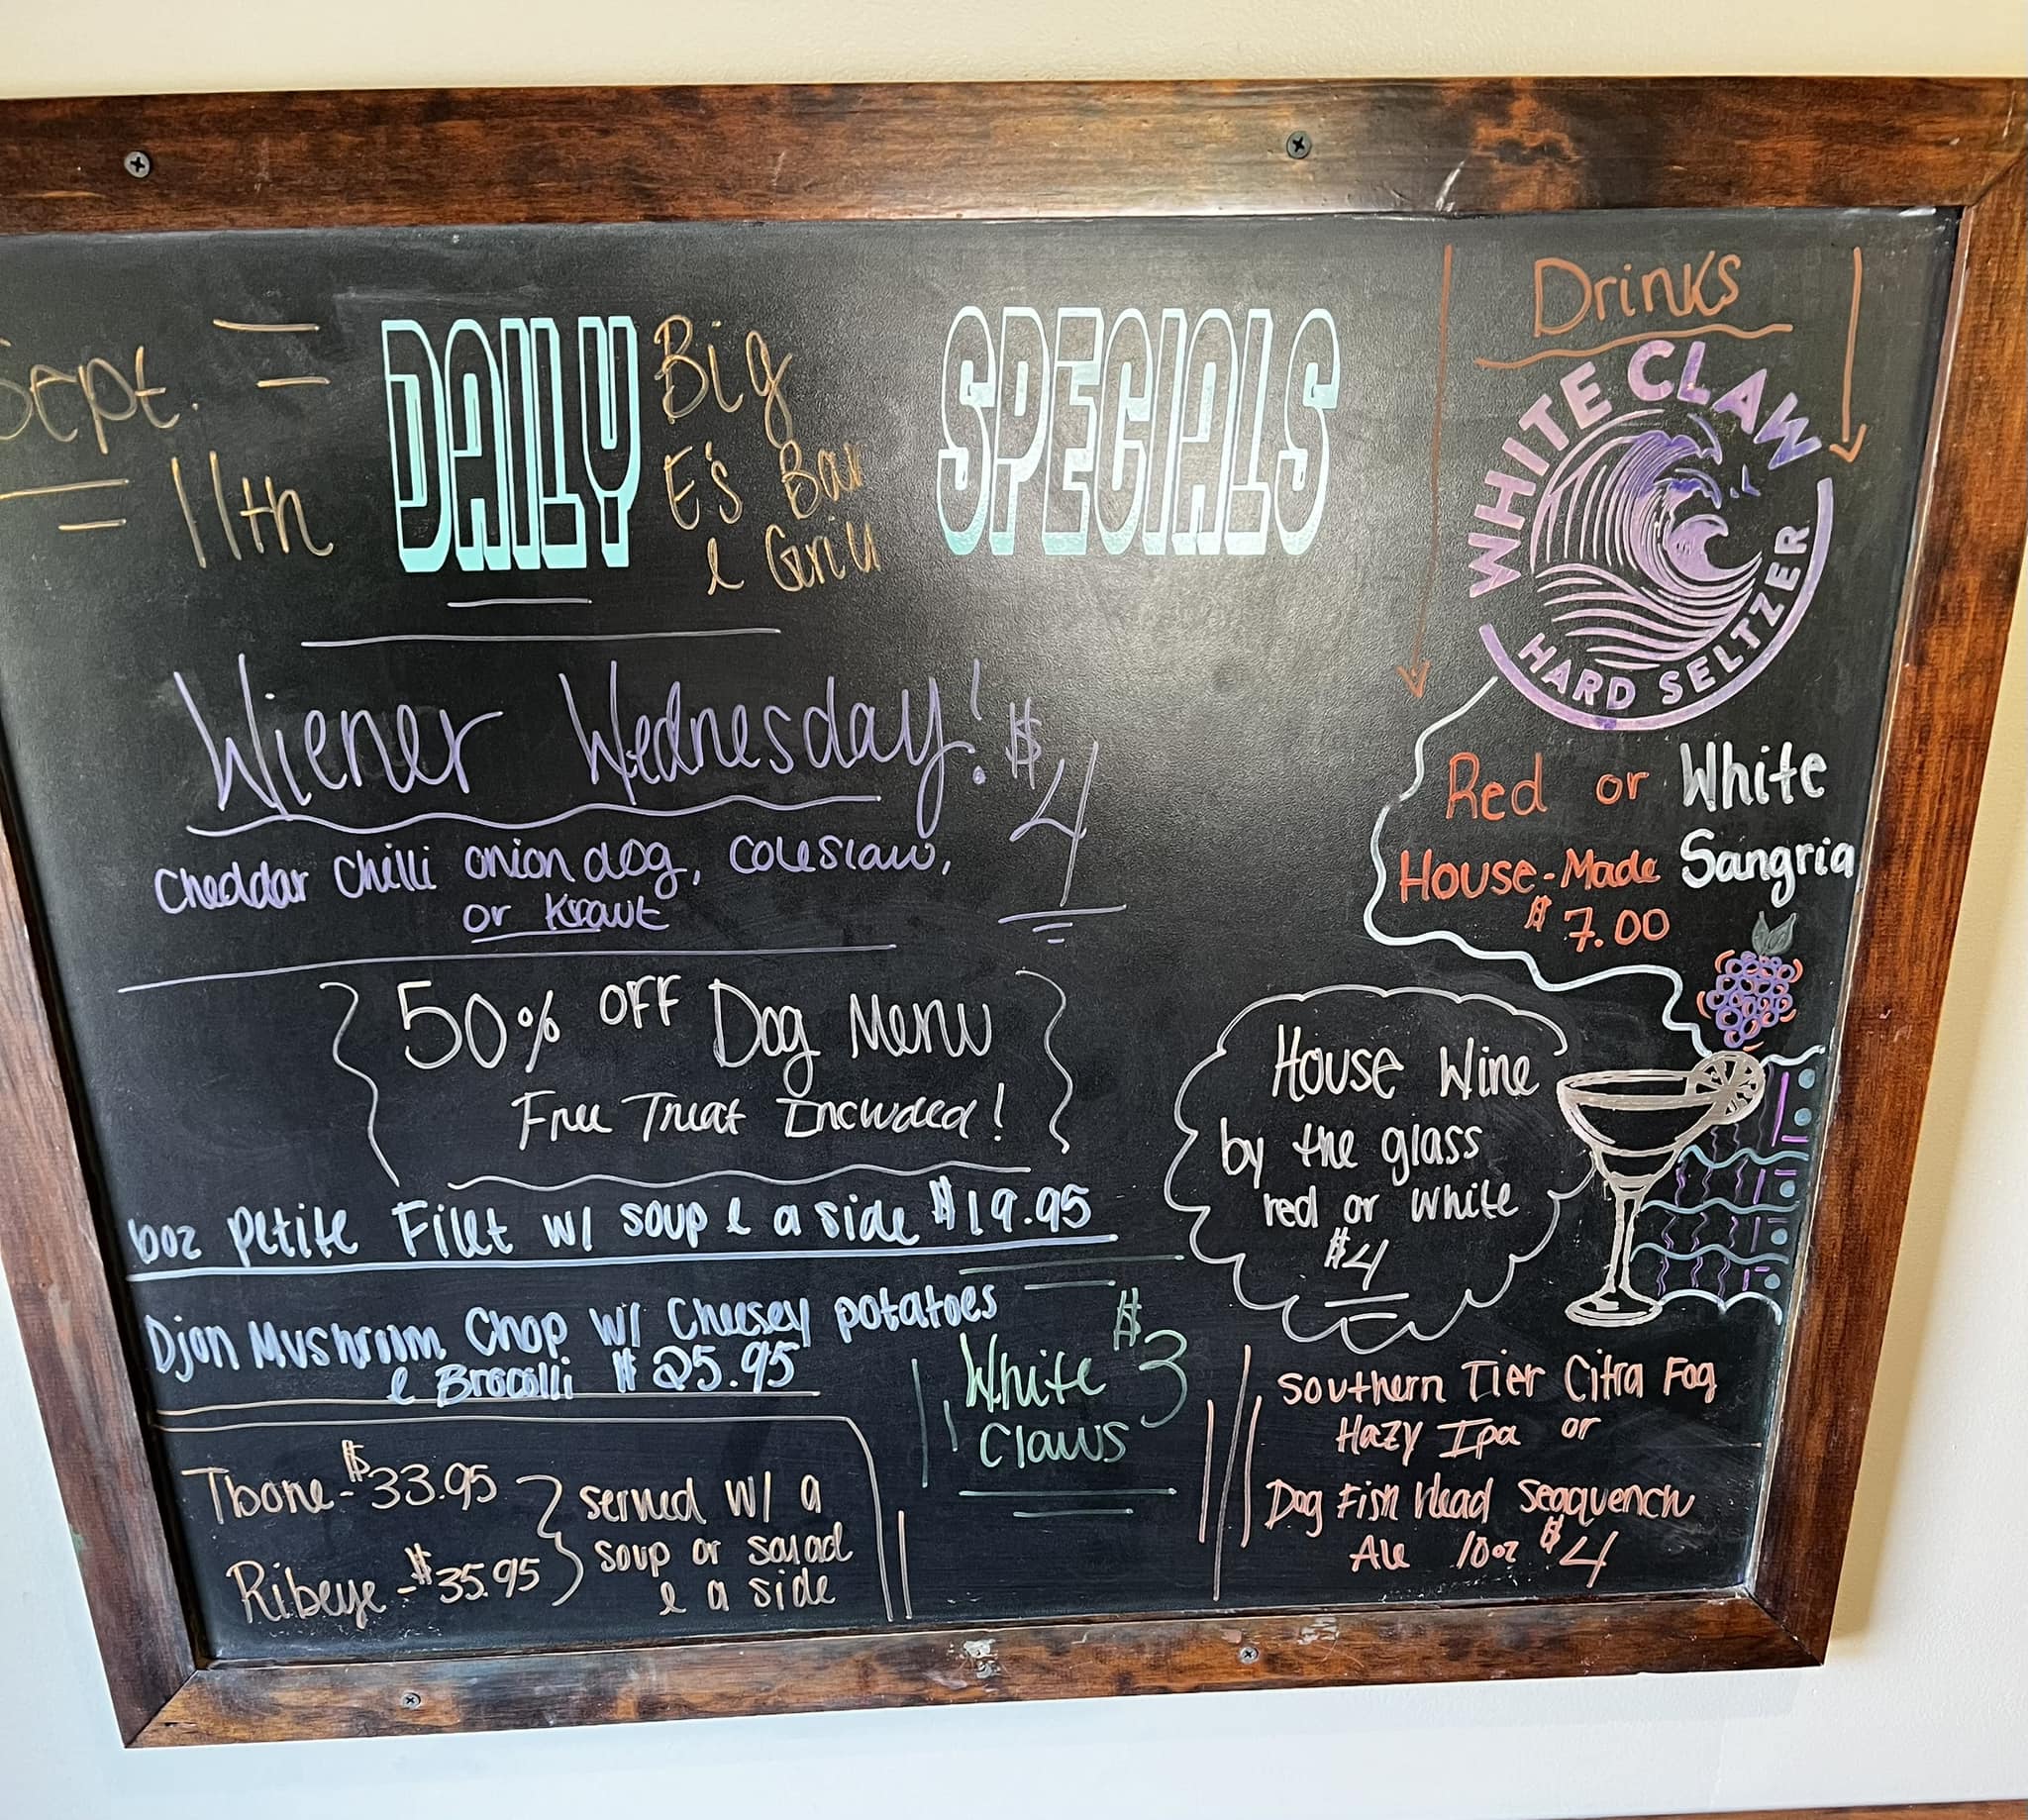 Sept.
11th
DAILY
Big
E's Bar
& Grill
SPECIALS
Wiener Wednesday! $4
Cheddar Chilli onion dog, Coleslaw,
or Kraut
50% OFF Dog Menu
Free Treat Included!
6oz Petite Filet w/ soup & a side $19.95
Djon Mushroom Chop w/ Cheesey potatoes
& Brocolli $25.95
Tbone - $33.95
Ribeye - $35.95
served w/ a
soup or salad
& a side
White $3
Claws
Drinks
WHITE CLAW
HARD SELTZER
Red or White
House-Made Sangria
$7.00
House Wine
by the glass
red or white
$4
Southern Tier Citra Fog
Hazy Ipa or
Dog Fish Head Seaquench
Ale 10oz $4